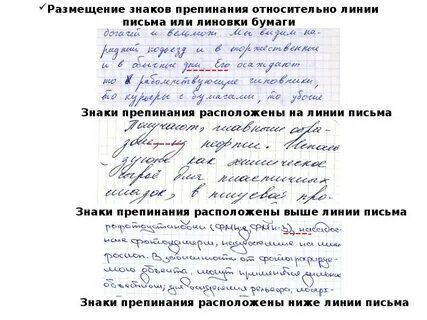 ✓Размещение знаков препинания относительно линии
письма или линовки бумаги
богат и вельмож. Мы видим па-
радный подъезд и в торжественные
и в обычные дни. Его осаждают
то раболепствующие чиновники,
то курьеры с бумагами, то убогие
Знаки препинания расположены на линии письма
Получают, главным обра-
зом, нефти. Исполь
зуют как химическое
сырьё для пластичных
смазок, в пищевой про-
Знаки препинания расположены выше линии письма
рофотоустановки (ФМН-2, ФМН-3), насадоч-
ные фотокамеры, надеваемые на мик
роскоп. В зависимости от фотографируе-
мого объекта, могут применяться
объективы; для выявления рельефа,
Знаки препинания расположены ниже линии письма